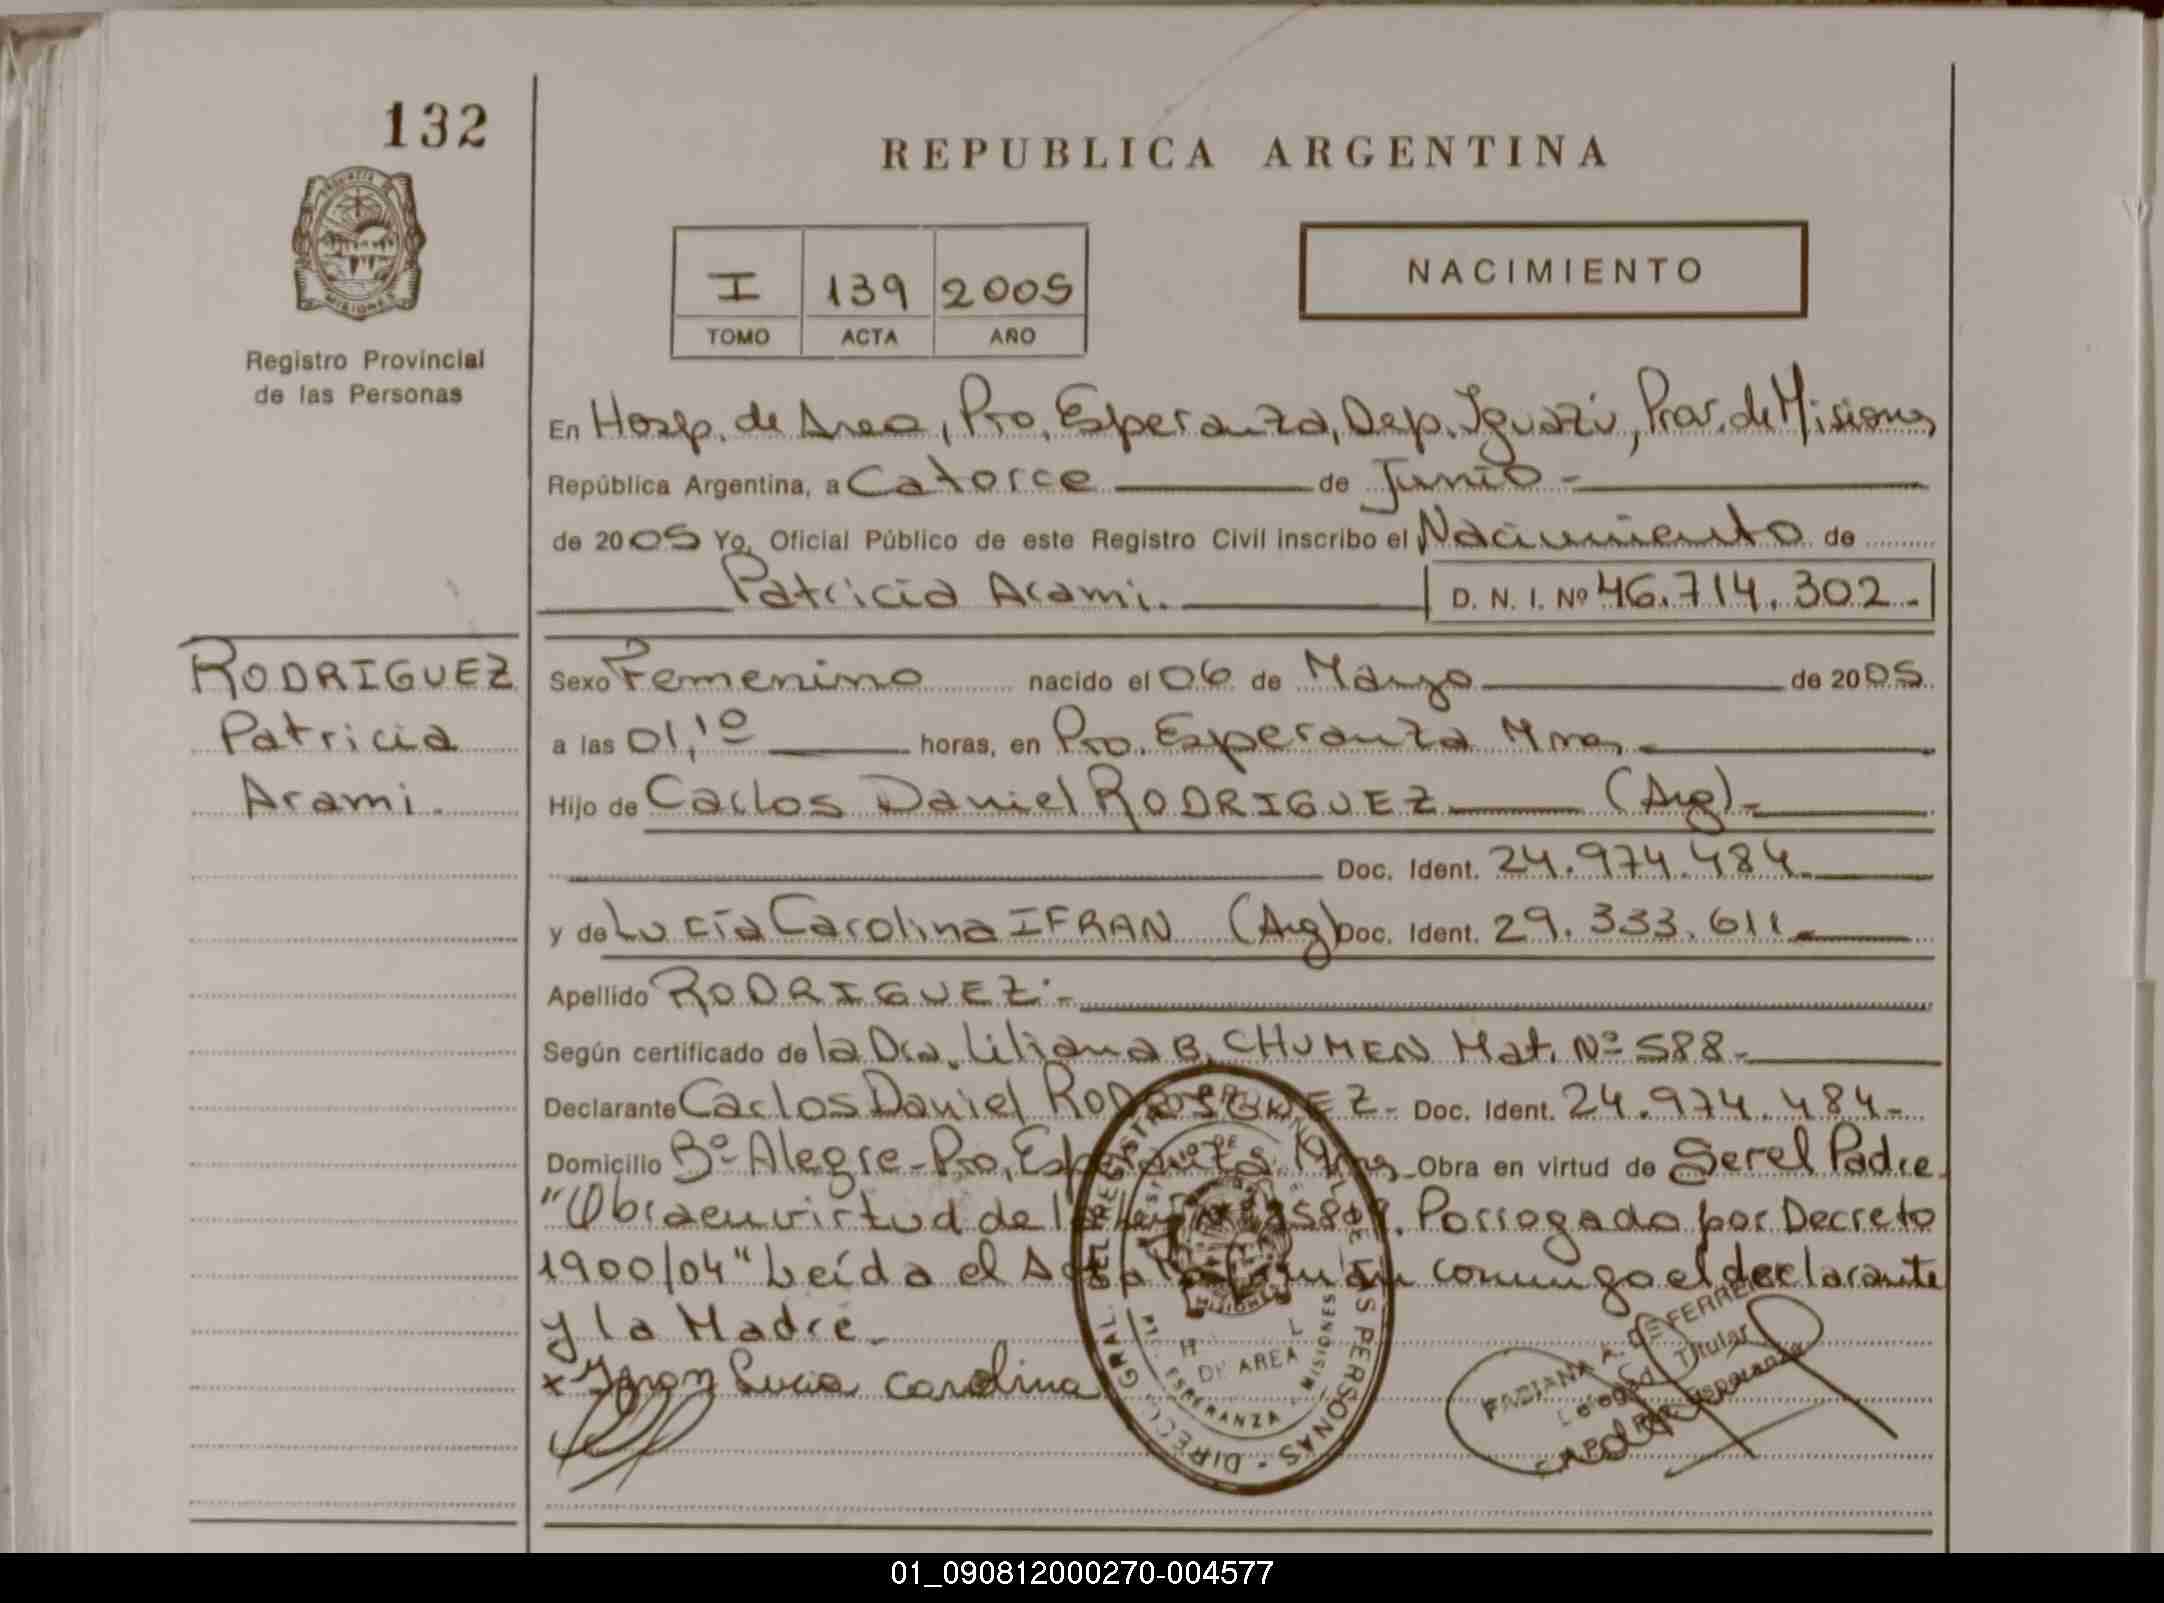 132
REPUBLICA ARGENTINA
PROVINCIA DE
MISIONES
Registro Provincial
de las Personas
I 139 2005
TOMO ACTA AÑO
NACIMIENTO
En Hosp. de Area, Pto. Esperanza, Dep. Iguazú, Prov. de Misiones
República Argentina, a Catorce de Junio -
de 2005 Yo, Oficial Público de este Registro Civil inscribo el Nacimiento de
Patricia Arami. D. N. I. Nº 46.714.302.-
RODRIGUEZ
Patricia
Arami.
Sexo Femenino nacido el 06 de Marzo de 2005
a las 01,10 horas, en Pto. Esperanza Mnes.
Hijo de Carlos Daniel RODRIGUEZ (Arg)-
Doc. Ident. 24.974.484.
y de Lucía Carolina IFRAN (Arg) Doc. Ident. 29.333.611.
Apellido RODRIGUEZ.-
Según certificado de la Dra. Liliana B. CHUMEN Mat. Nº 588-
Declarante Carlos Daniel RODRIGUEZ- Doc. Ident. 24.974.484-
Domicilio Bº Alegre- Pto. Esperanza Mnes- Obra en virtud de Ser el Padre-
"Obra en virtud de la Ley Porrogado por Decreto
1900/04" Leída el Acta conmigo el declarante
y la Madre-
x Ifran Lucia Carolina
DIRECC. GRAL. DEL REGISTRO DE LAS PERSONAS
MISIONES
H L
DE AREA
ESPERANZA - MISIONES
FABIANA A. DE FERREI
Delegad Titular
Pto. Esperanza
01_090812000270-004577